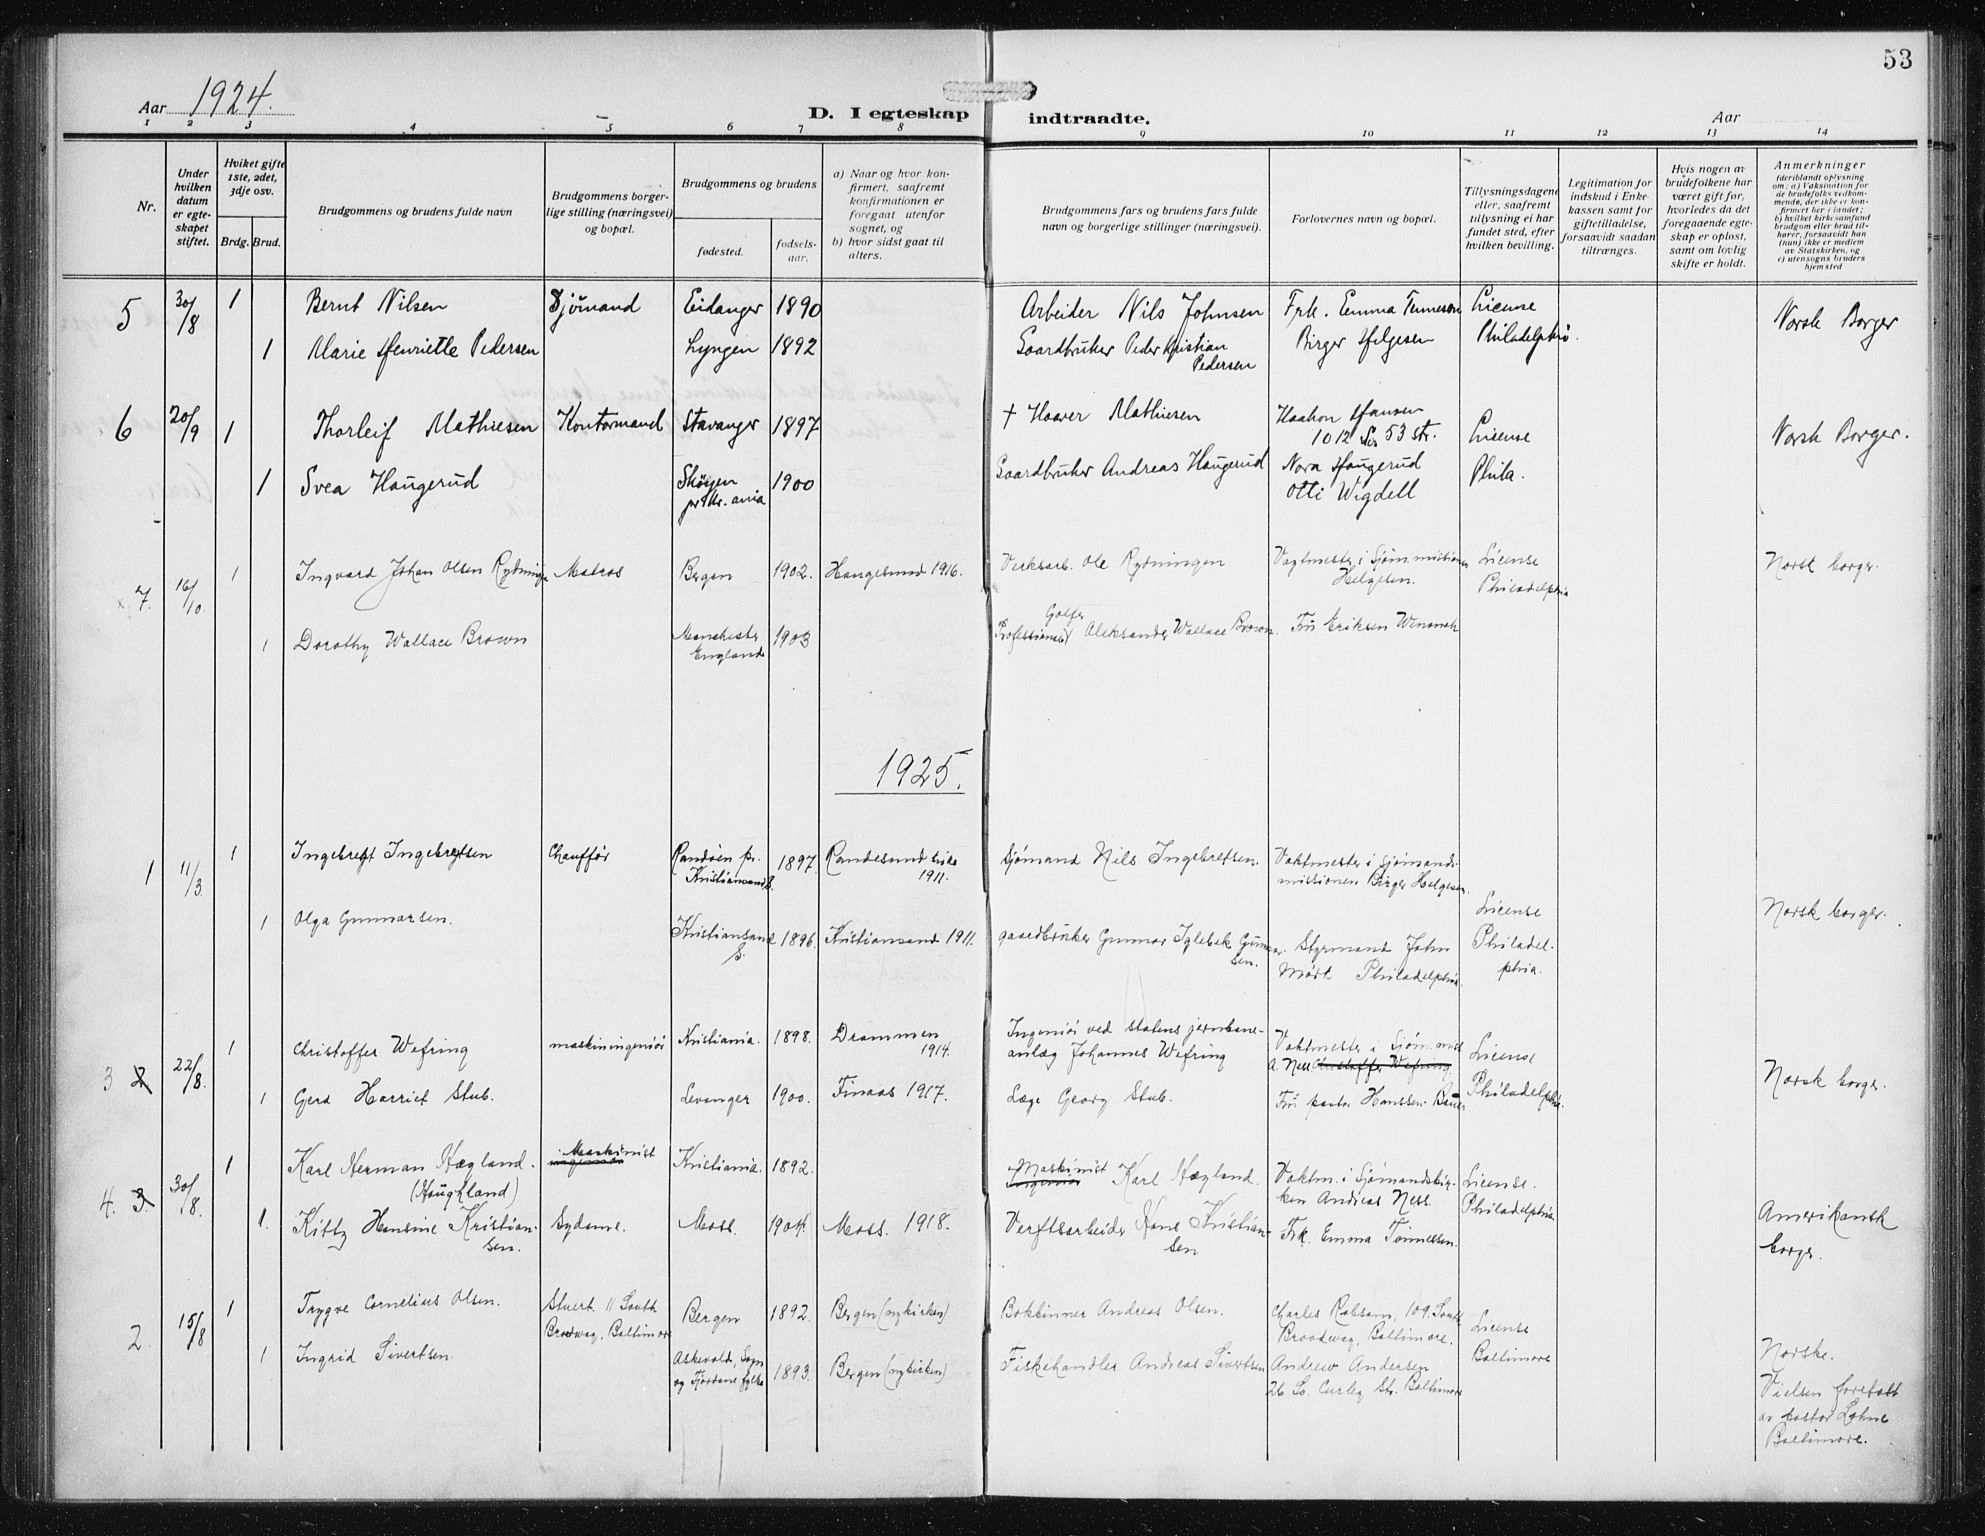 53
Aar 1924.
D. I egteskap indtraadte.
Aar
1 2 3 4 5 6 7 8 9 10 11 12 13 14
Nr.
Under hvilken datum er egteskapet stiftet.
Hvilket gifte 1ste, 2det, 3dje osv.
Brdg. Brud.
Brudgommens og brudens fulde navn
Brudgommens borgerlige stilling (næringsvei) og bopæl.
Brudgommens og brudens
fødested.
fødselsaar.
a) Naar og hvor konfirmert, saafremt konfirmationen er foregaat utenfor sognet, og
b) hvor sidst gaat til alters.
Brudgommens fars og brudens fars fulde navn og borgerlige stillinger (næringsvei).
Forlovernes navn og bopæl.
Tillysningsdagene eller, saafremt tillysning ei har fundet sted, efter hvilken bevilling.
Legitimation for indskud i Enkekassen samt for giftetilladelse, forsaavidt saadan tiltrænges.
Hvis nogen av brudefolkene har været gift før, hvorledes da det foregaaende egteskap er opløst, samt om lovlig skifte er holdt.
Anmerkninger (deriblandt oplysning om: a) Vaksination for de brudefolks vedkommende, der ikke er konfirmert her i landet; b) hvilket kirkesamfund brudgom eller brud tilhører, forsaavidt han (hun) ikke er medlem av Statskirken, og c) utensogns bruders hjemsted
5 30/8 1 Bernt Nilsen Sjömand Eidanger 1890 Arbeider Nils Johnsen Frk. Emma Tennesen License Norsk Borger
1 Marie Henriette Pedersen Lyngen 1892 Gaardbruker Peder Kristian Pedersen Birger Helgesen Philadelphia.
6 20/9 1 Thorleif Mathiesen Kontormand Stavanger 1897 † Haaver Mathiesen Haakon Hansen 1012 So. 53 str. License Norsk Borger.
1 Svea Haugerud Skøyen pr Kr.ania 1900 Gaardbruker Andreas Haugerud Nora Haugerud Otti Wigdell Phila.
7. 16/10. 1 Ingvard Johan Olsen Rydninge Matros Bergen 1902. Haugesund 1916. Verksarb. Ole Rydningen Vagtmester i Sjøm.missionen Helgesen. License Philadelphia Norsk borger.
1 Dorothy Wallace Brown Manchester England 1903 Golfer Professional Aleksander Wallace Brown. Fru Eriksen Wenonah
1925.
1 11/3. 1 Ingebregt Ingebretsen Chauffør Randøen pr. Kristiansand S. 1897. Randesund kirke 1911. Sjømand Nils Ingebretsen. Vaktmester i Sjømandsmissionen Birger Helgesen.
1 Olga Gunnarsen. Kristiansand S. 1896. Kristiansand 1911. gaardbruker Gunnar Iglebæk Gunnarsen. Styrmand John Mört Philadelphia. License Philadelphia. Norsk borger.
3 2 22/8. 1 Christoffer Wefring maskiningeniør Kristiania. 1898. Drammen 1914. Ingeniør ved statens jernbaneanlæg Johannes Wefring Vaktmester i Sjøm.miss A. Ness Christoffer Wefring License Philadelphia. Norsk borger.
1 Gerd Harriet Stub. Levanger 1900. Finaas 1917. Læge Georg Stub. Fru pastor Hanssen-Bauer
4. 3. 30/8. 1 Karl Herman Hægland. (Haughland) Maskinist ingeniør Kristiania. 1892. Maskinist ingeniør Karl Hægland. Vaktm. i Sjømandskirken Andreas Ness. License. Philadelphia
1. Kitty Hansine Kristiansen. Sydame. Moss. 1904. Moss. 1918. Verftsarbeider Hans Kristiansen Frk. Emma Tønnessen. Amerikansk borger.
2. 15/8 1 Trygve Cornelius Olsen. Stuert. 11 South Broadway, Baltimore Bergen 1892. Bergen (nykirken) Bokbinner Andreas Olsen. Charles Robsam, 109. South Broadway, Baltimore. License Baltimore
1 Ingrid Sivertsen. Askevold, Sogn og Fjordane fylke 1893. Bergen (nykirken) Fiskehandler Andreas Sivertsen Andrew Andersen 26 So. Curley Str. Baltimore Norske.
Vielsen foretatt av pastor Lohne Baltimore.